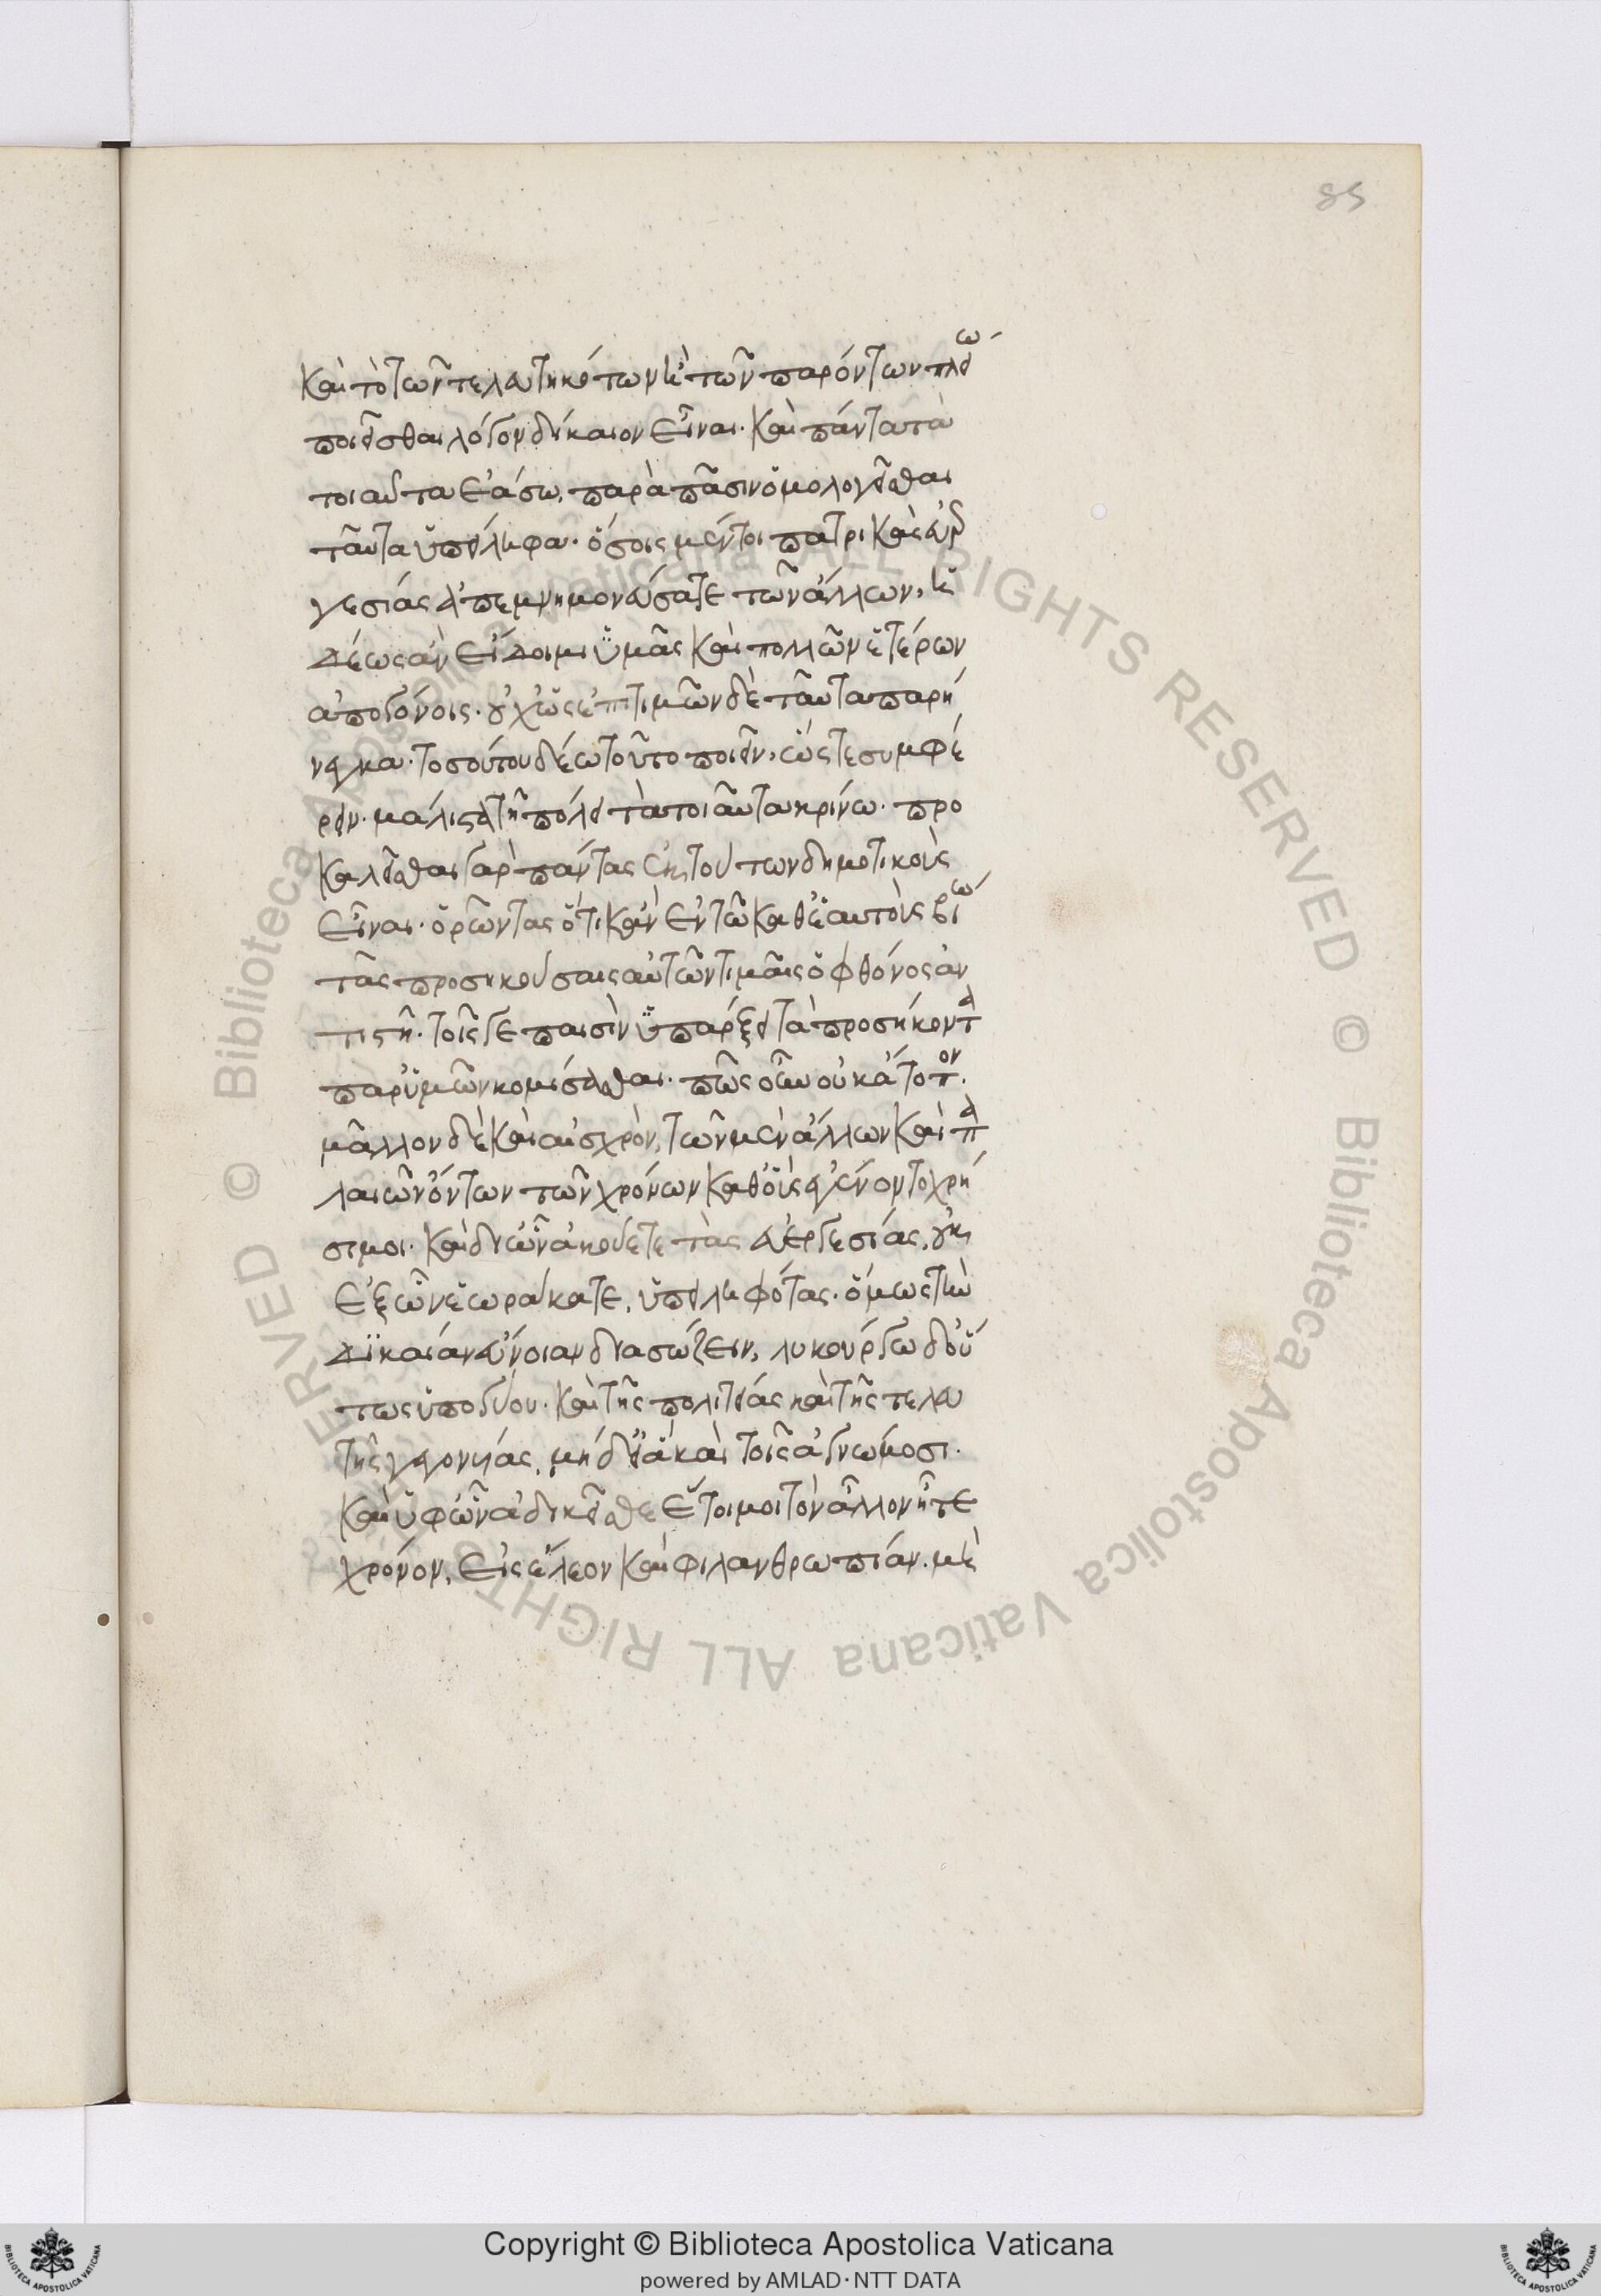 85
καὶ τὸ τῶν τετελευτηκότων ἢ τῶν παρόντων πλείω
ποιεῖσθαι λόγον δίκαιον εἶναι. καὶ πάντα τὰ
τοιαῦτα ἐάσω, παρὰ πᾶσιν ὁμολογεῖσθαι
ταῦτα ὑπείληφα. ὅσοις μέντοι πατρικὰς εὐερ
γεσίας ἀπεμνημονεύσατε τῶν ἄλλων, ἡ
δέως ἂν εἰδοιμι ὑμᾶς καὶ πολλῶν ἑτέρων
ἀπογόνοις. οὐχ ὡς ἐπιτιμῶν δὲ ταῦτα παρή
νεγκα. τοσούτου δέω τοῦτο ποιεῖν, ὥστε συμφέ
ρειν μάλιστα τῇ πόλει τὰ τοιαῦτα κρίνω. προ
καλεῖσθαι γὰρ πάντας ἐκ τούτων δημοτικοὺς
εἶναι. ὁρῶντας ὅτι κἂν ἐν τῷ καθ' ἑαυτοὺς βίῳ
ταῖς προσηκούσαις αὐτῶν τιμαῖς ὁ φθόνος ἀν
τιστῇ. τοῖς γε παισὶν ὑπάρξει τὰ προσήκοντα
παρ' ὑμῶν κομίσασθαι. πῶς οὖν οὐκ ἄτοπον.
μᾶλλον δὲ καὶ αἰσχρὸν, τῶν μὲν ἄλλων καὶ πα
λαιῶν ὄντων τῶν χρόνων καθ' οὓς ἐγένοντο χρή
σιμοι. καὶ δι' ὧν ἀκούετε τὰς εὐεργεσίας, οὐκ
ἐξ ὧν ἑωράκατε, ὑπειληφότας. ὅμως τὴν
δικαίαν εὔνοιαν διασώζειν, λυκούργῳ δ' οὕ
τως ὑπογύου. καὶ τῆς πολιτείας καὶ τῆς τελευ
τῆς γεγονυίας, μηδ' εἰ ἃ καὶ τοῖς ἀγνώμοσι.
καὶ ὑφ' ὧν ἀδικεῖσθε ἕτοιμοι τὸν ἄλλον ἦτε
χρόνον, εἰς ἔλεον καὶ φιλανθρωπίαν. μὴ
© Biblioteca Apostolica Vaticana ALL RIGHTS RESERVED © Biblioteca Apostolica Vaticana ALL RIGHTS RESERVED
Copyright © Biblioteca Apostolica Vaticana
powered by AMLAD·NTT DATA